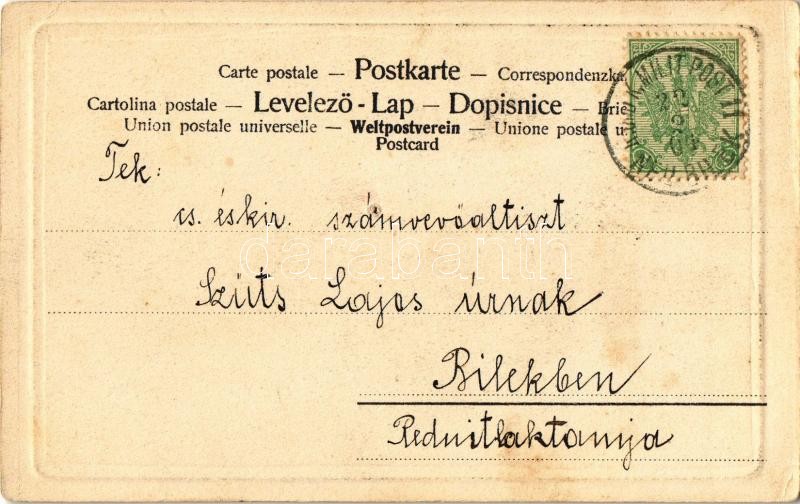 Carte postale — Postkarte — Correspondenzka
Cartolina postale — Levelező-Lap — Dopisnice — Brie
Union postale universelle — Weltpostverein — Unione postale u
Postcard
K.U.K. MILIT. POST II
Tek:
cs. és kir. számvevőaltiszt
Szüts Lajos úrnak
Bilekben
darabanth